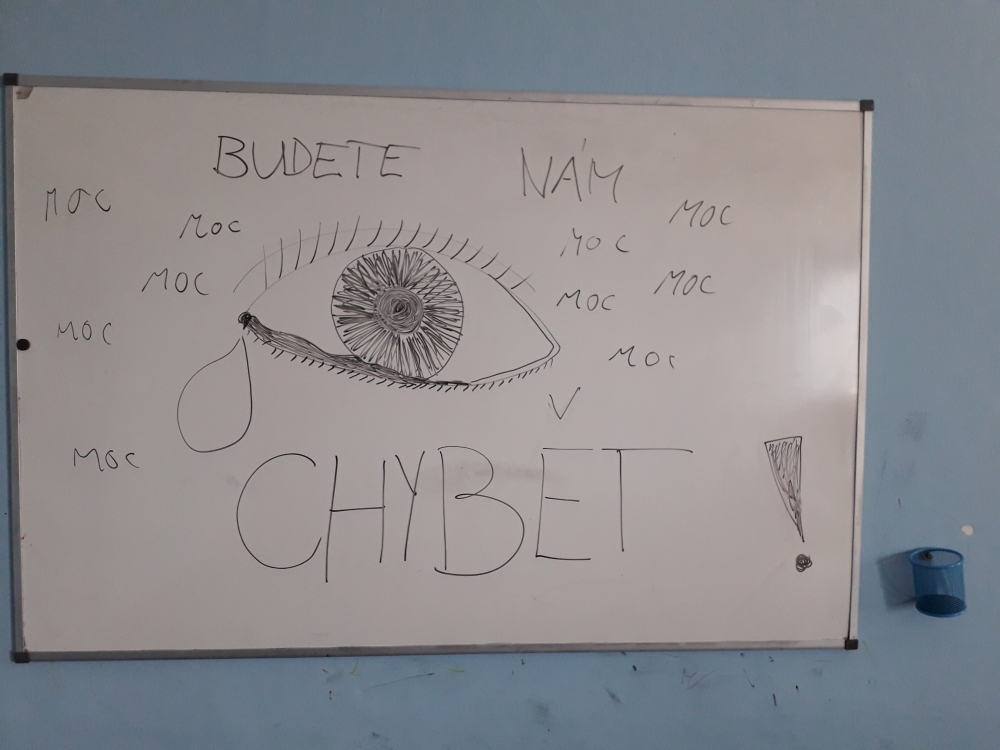 BUDETE NÁM
MOC
MOC
MOC
MOC
MOC
MOC
MOC
MOC
MOC
MOC
CHYBĚT!